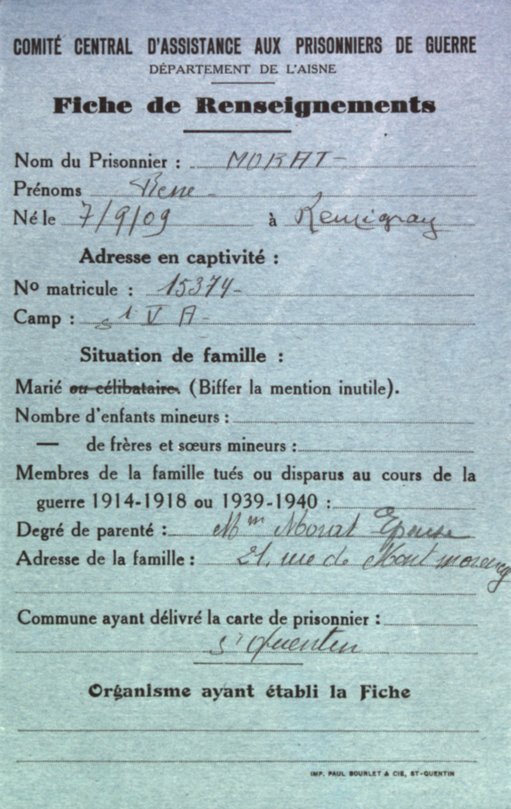 COMITÉ CENTRAL D'ASSISTANCE AUX PRISONNIERS DE GUERRE
DÉPARTEMENT DE L'AISNE
Fiche de Renseignements
Nom du Prisonnier : MORAT-
Prénoms Rene -
Né le 7/9/09 à Remigny
Adresse en captivité :
No matricule : 15374-
Camp : st V A-
Situation de famille :
Marié ou célibataire. (Biffer la mention inutile).
Nombre d'enfants mineurs :
— de frères et sœurs mineurs :
Membres de la famille tués ou disparus au cours de la
guerre 1914-1918 ou 1939-1940 :
Degré de parenté : Mm Morat Epouse
Adresse de la famille : 21, rue de
Commune ayant délivré la carte de prisonnier :
St Quentin
Organisme ayant établi la Fiche
IMP. PAUL BOURLET & CIE, ST-QUENTIN